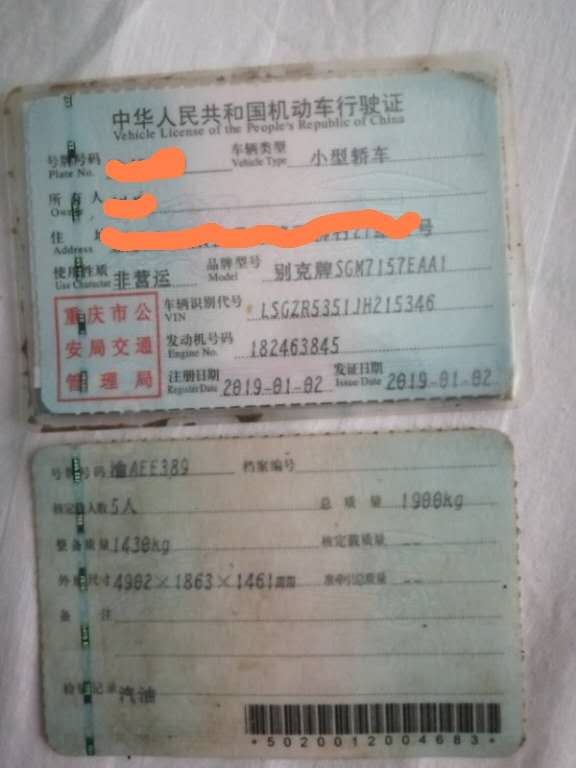 中华人民共和国机动车行驶证
Vehicle License of the People's Republic of China
号牌号码 车辆类型 小型轿车
Plate No. Vehicle Type
所有人
Owner
住
Address 号
使用性质 非营运 品牌型号 别克牌SGM7157EAA1
Use Character Model
重庆市公
安局交通
管理局
车辆识别代号 LSGZR5351JH215346
VIN
发动机号码 182463845
Engine No.
注册日期 2019-01-02 发证日期 2019-01-02
Register Date Issue Date
号牌号码 渝AFE389 档案编号
核定载人数 5人 总质量 1900kg
整备质量 1430kg 核定载质量 --
外廓尺寸 4902×1863×1461mm 准牵引总质量 --
备注
检验记录 汽油
*5020012004683*